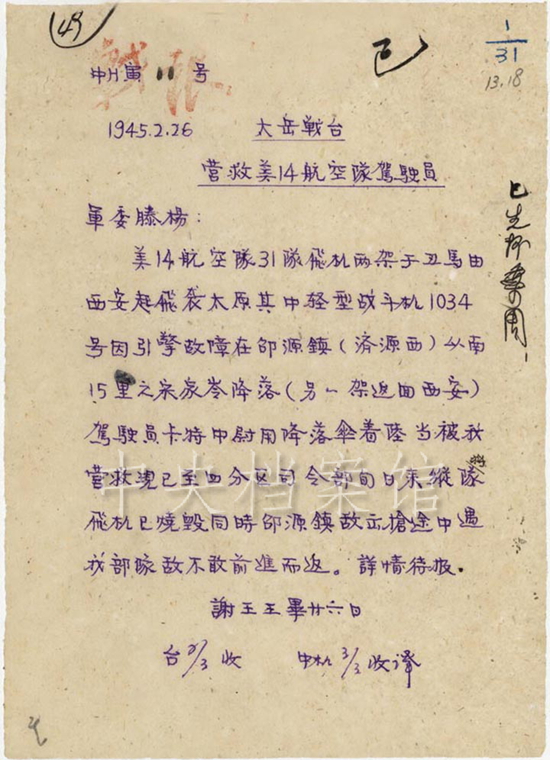 49
1
31
13.18
战报
中H寅11号
1945.2.26 太岳战台
营救美14航空隊駕駛员
軍委滕楊：
美14航空隊31隊飛机两架于丑馬由
西安起飛袭太原其中轻型战斗机1034
号因引擎故障在邵源鎮（済源西）以南
15里之宋家岺降落（另一架返回西安）
駕駛員卡特中尉用降落傘着陸当被我
营救現已至四分区司令部旬日来縱隊
飛机已燒毁同時邵源鎮敌出搶途中遇
我部隊敌不敢前進而返。詳情待报.
謝王王畢廿六日
台 2/3 收 中机 3/3 收译
中央档案馆